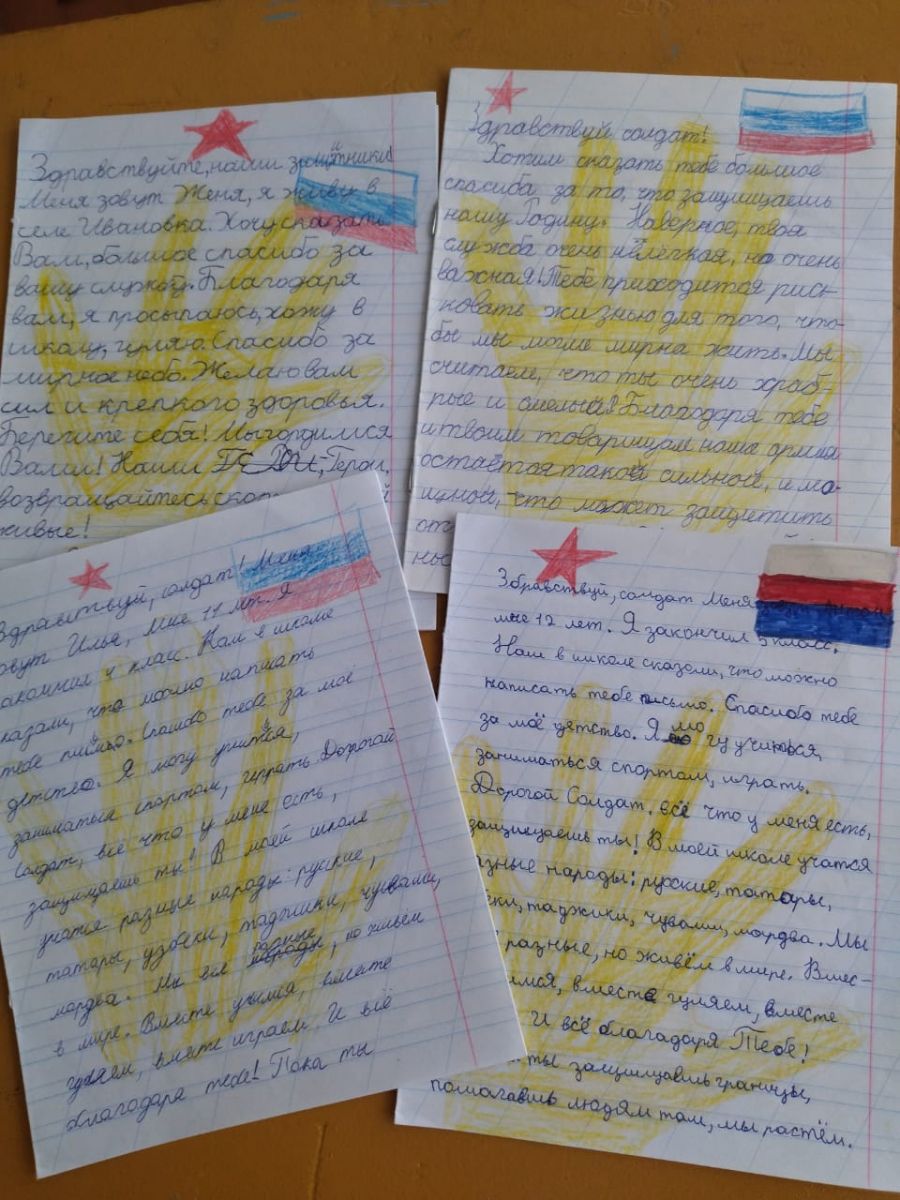 Здравствуйте, наши защитники!
Меня зовут Женя, я живу в
селе Ивановка. Хочу сказать
Вам, большое спасибо за
вашу службу. Благодаря
вам, я просыпаюсь, хожу в
школу, гуляю. Спасибо за
мирное небо. Желаю вам
сил и крепкого здоровья.
Берегите себя! Мы гордимся
Вами! Наши Герои,
возвращайтесь скоре
живые!
Здравствуй солдат!
Хотим сказать тебе большое
спасиба за то, что защищаешь
нашу Родину. Наверное, твоя
служба очень нелегкая, но очень
важная! Тебе приходится рис-
ковать жизнью для того, что-
бы мы могли мирна жить. Мы
считаем, что ты очень храб-
рые и смелый! Благодоря тебе
и твоим товарищам наша армия
остаётся такой сильной, и мо-
щной, что может защитить
от
ны
Здравствуй, солдат! Меня
зовут Илья, мне 11 лет. Я
акончил 4 класс. Нам в школе
казали, что можно написать
тебе письмо. Спасибо тебе за моё
детство. Я могу учится,
заниматься спортом, играть. Дорогой
Солдат, всё что у меня есть,
защищаешь ты! В моей школе
учатся разные народы: русские,
татары, узбеки, таджики, чуваши,
мордва. Мы все разные, но живём
в мире. Вместе учимся, вместе
гуляем, вместе играем. И всё
благодаря тебе! Пока ты
Здравствуй, солдат Меня
мне 12 лет. Я закончил 5 класс.
Нам в школе сказали, что можно
написать тебе письмо. Спасибо тебе
за моё детство. Я могу учиться,
заниматься спортом, играть.
Дорогой Солдат, всё что у меня есть,
защищаешь ты! В моей школе учатся
азные народы: русские, татары,
еки, таджики, чуваши, мордва. Мы
разные, но живём в мире. Вмес-
имся, вместе гуляем, вместе
И всё благодоря Тебе!
ты защищаешь границы,
помогаешь людям там, мы растём.